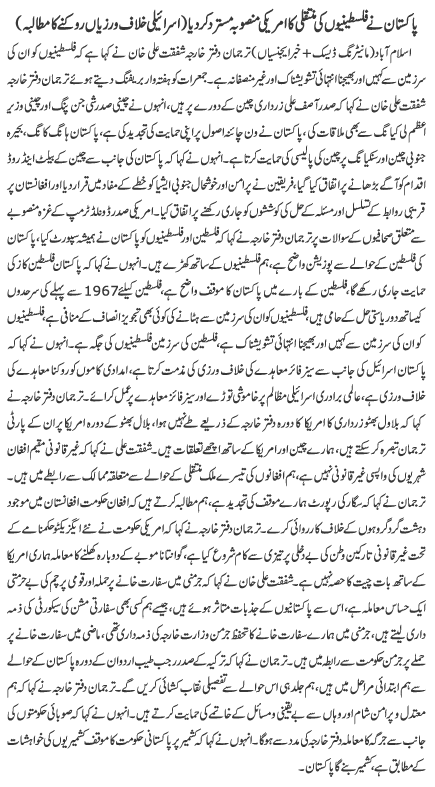 پاکستان نے فلسطینیوں کی منتقلی کا امریکی منصوبہ مسترد کردیا (اسرائیلی خلاف ورزیاں روکنے کا مطالبہ)
اسلام آباد (مانیٹرنگ ڈیسک + خبر ایجنسیاں) ترجمان دفتر خارجہ شفقت علی خان نے کہا ہے کہ فلسطینیوں کو ان کی
سرزمین سے کہیں اور بھیجنا انتہائی تشویشناک اور غیر منصفانہ ہے۔ جمعرات کو ہفتہ وار بریفنگ دیتے ہوئے ترجمان دفتر خارجہ
شفقت علی خان نے کہا کہ صدر آصف علی زرداری چین کے دورے پر ہیں، انہوں نے چینی صدر شی جن پنگ اور چینی وزیر
اعظم لی کیانگ سے بھی ملاقات کی، پاکستان نے ون چائنہ اصول پر اپنی حمایت کی تجدید کی ہے، پاکستان ہانگ کانگ، بحیرہ
جنوبی چین اور سنکیانگ پر چین کی پالیسی کی حمایت کرتا ہے۔ انہوں نے کہا کہ پاکستان کی جانب سے چین کے بیلٹ اینڈ روڈ
اقدام کو آگے بڑھانے پر اتفاق کیا گیا، فریقین نے پرامن اور خوشحال جنوبی ایشیا کو خطے کے مفاد میں قرار دیا اور افغانستان پر
قریبی روابط کے تسلسل اور مسئلہ کے حل کی کوششوں کو جاری رکھنے پر اتفاق کیا۔ امریکی صدر ڈونلڈ ٹرمپ کے غزہ منصوبے
سے متعلق صحافیوں کے سوالات پر ترجمان دفتر خارجہ نے کہا کہ فلسطین اور فلسطینیوں کو پاکستان نے ہمیشہ سپورٹ کیا، پاکستان
کی فلسطین کے حوالے سے پوزیشن واضح ہے، ہم فلسطینیوں کے ساتھ کھڑے ہیں۔ انہوں نے کہا کہ پاکستان فلسطین کاز کی
حمایت جاری رکھے گا، فلسطین کے بارے میں پاکستان کا موقف واضح ہے، فلسطین کیلئے 1967 سے پہلے کی سرحدوں
کیساتھ دو ریاستی حل کے حامی ہیں، فلسطینیوں کو ان کی سرزمین سے ہٹانے کی کوئی بھی تجویز انصاف کے منافی ہے، فلسطینیوں
کو ان کی سرزمین سے کہیں اور بھیجنا انتہائی تشویشناک ہے، فلسطین کی سرزمین فلسطینیوں کی جگہ ہے۔ انہوں نے کہا کہ
پاکستان اسرائیل کی جانب سے سیز فائر معاہدے کی خلاف ورزی کی مذمت کرتا ہے، امدادی کاموں کو روکنا معاہدے کی
خلاف ورزی ہے، عالمی برادری اسرائیلی مظالم پر خاموشی توڑے اور سیز فائر معاہدے پر عمل کرائے۔ ترجمان دفتر خارجہ نے
کہا کہ بلاول بھٹو زرداری کا امریکا کا دورہ دفتر خارجہ کے ذریعے طے نہیں ہوا، بلاول بھٹو کے دورہ امریکا پر ان کے پارٹی
ترجمان تبصرہ کر سکتے ہیں، ہمارے چین اور امریکا کے ساتھ اچھے تعلقات ہیں۔ شفقت علی نے کہا کہ غیر قانونی مقیم افغان
شہریوں کی واپسی غیر قانونی نہیں ہے، ہم افغانوں کی تیسرے ملک منتقلی کے حوالے سے متعلقہ ممالک سے رابطے میں ہیں۔
ترجمان نے کہا کہ سگار کی رپورٹ ہمارے موقف کی تجدید ہے، ہم مطالبہ کرتے ہیں کہ افغان حکومت افغانستان میں موجود
دہشت گرد گروہوں کے خلاف کارروائی کرے۔ ترجمان دفتر خارجہ نے کہا کہ امریکی حکومت نے نئے ایگزیکٹو حکمنامے کے
تحت غیر قانونی تارکین وطن کی بے دخلی پر تیزی سے کام شروع کیا ہے، گوانتانا موبے کے دوبارہ کھلنے کا معاملہ ہماری امریکا
کے ساتھ بات چیت کا حصہ نہیں ہے۔ شفقت علی خان نے کہا کہ جرمنی میں سفارت خانے پر حملہ اور قومی پرچم کی بے حرمتی
ایک حساس معاملہ ہے، اس سے پاکستانیوں کے جذبات متاثر ہوئے ہیں، جیسے ہم کسی بھی سفارتی مشن کی سیکورٹی کی ذمہ
داری لیتے ہیں، جرمنی میں ہمارے سفارت خانے کا تحفظ جرمن وزارت خارجہ کی ذمہ داری تھی، ماضی میں سفارت خانے پر
حملے پر جرمن حکومت سے رابطے میں ہیں۔ ترجمان نے کہا کہ ترکیہ کے صدر رجب طیب اردوان کے دورہ پاکستان کے حوالے
سے ہم ابتدائی مراحل میں ہیں، ہم جلد ہی اس حوالے سے تفصیلی نقاب کشائی کریں گے۔ ترجمان دفتر خارجہ نے کہا کہ ہم
معتدل و پرامن شام اور وہاں سے بے یقینی و مسائل کے خاتمے کی حمایت کرتے ہیں۔ انہوں نے کہا کہ صوبائی حکومتوں کی
جانب سے جرگہ کا معاملہ دفتر خارجہ کی مدد سے ہوگا۔ انہوں نے کہا کہ کشمیر پر پاکستانی حکومت کا موقف کشمیریوں کی خواہشات
کے مطابق ہے، کشمیر بنے گا پاکستان۔